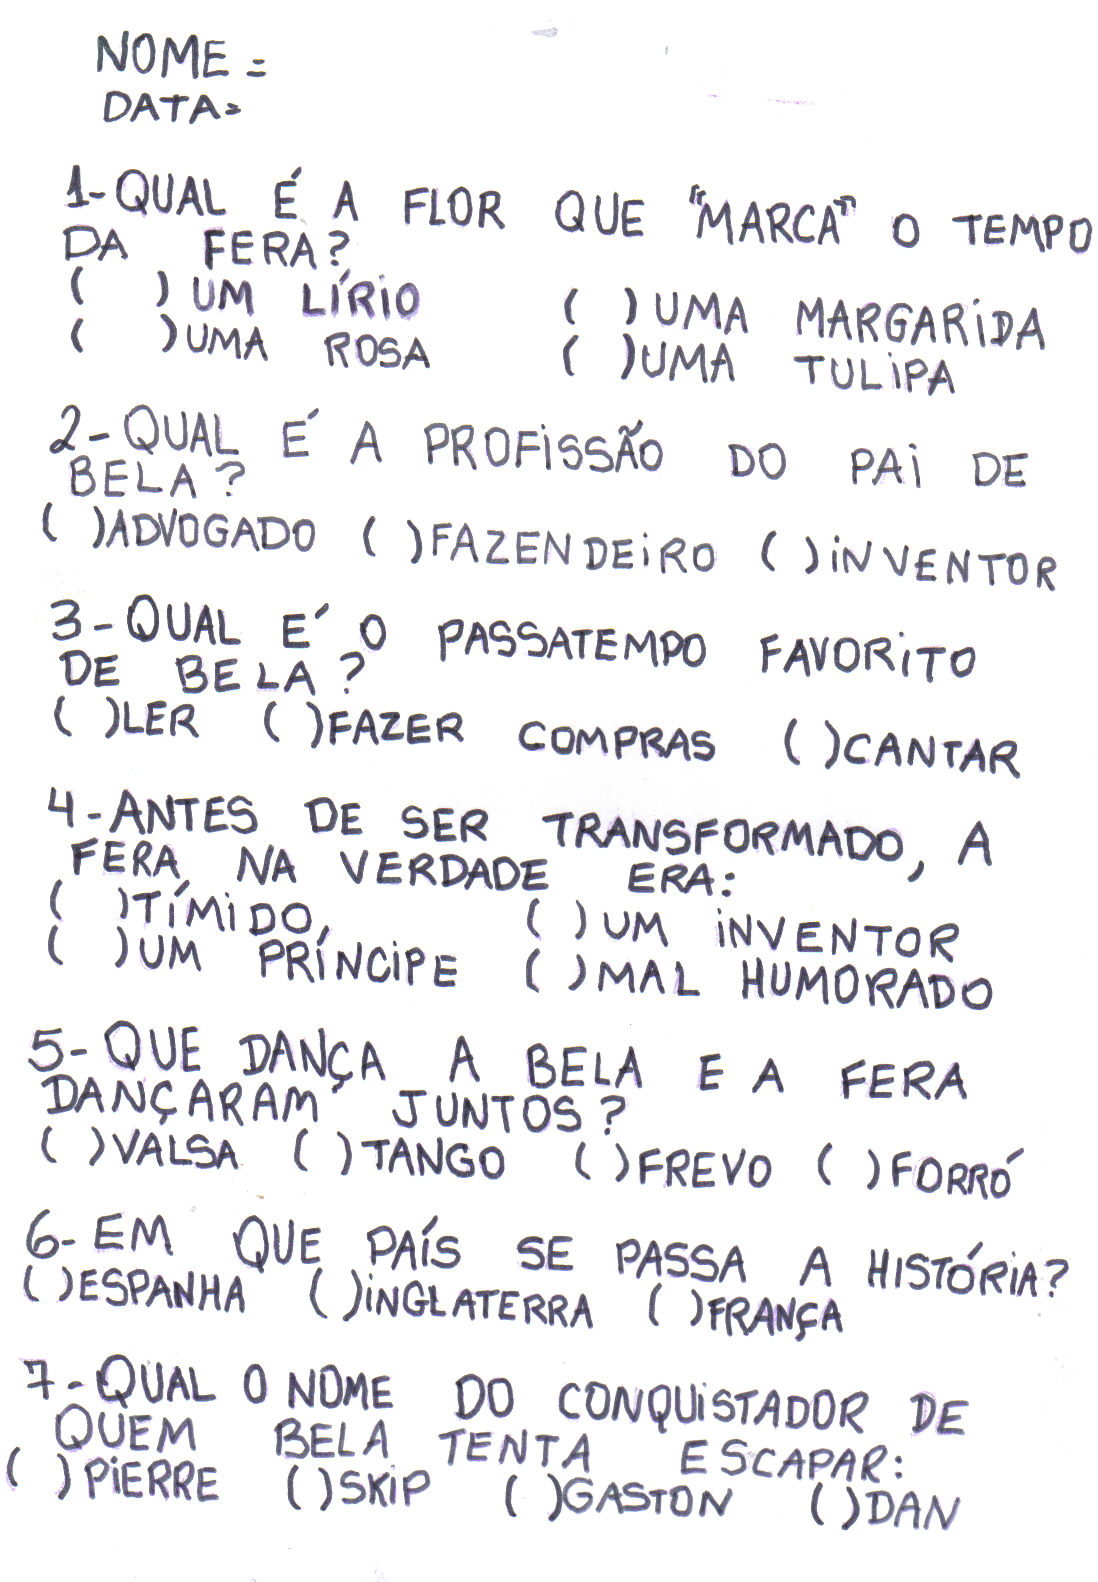 NOME =
DATA=
1-QUAL É A FLOR QUE "MARCA" O TEMPO
DA FERA?
( ) UM LÍRIO ( ) UMA MARGARIDA
( ) UMA ROSA ( ) UMA TULIPA
2-QUAL É A PROFISSÃO DO PAI DE
BELA?
( ) ADVOGADO ( ) FAZENDEIRO ( ) INVENTOR
3-QUAL É O PASSATEMPO FAVORITO
DE BELA?
( ) LER ( ) FAZER COMPRAS ( ) CANTAR
4-ANTES DE SER TRANSFORMADO, A
FERA NA VERDADE ERA:
( ) TÍMIDO, ( ) UM INVENTOR
( ) UM PRÍNCIPE ( ) MAL HUMORADO
5-QUE DANÇA A BELA E A FERA
DANÇARAM JUNTOS?
( ) VALSA ( ) TANGO ( ) FREVO ( ) FORRÓ
6-EM QUE PAÍS SE PASSA A HISTÓRIA?
( ) ESPANHA ( ) INGLATERRA ( ) FRANÇA
7-QUAL O NOME DO CONQUISTADOR DE
QUEM BELA TENTA ESCAPAR:
( ) PIERRE ( ) SKIP ( ) GASTON ( ) DAN